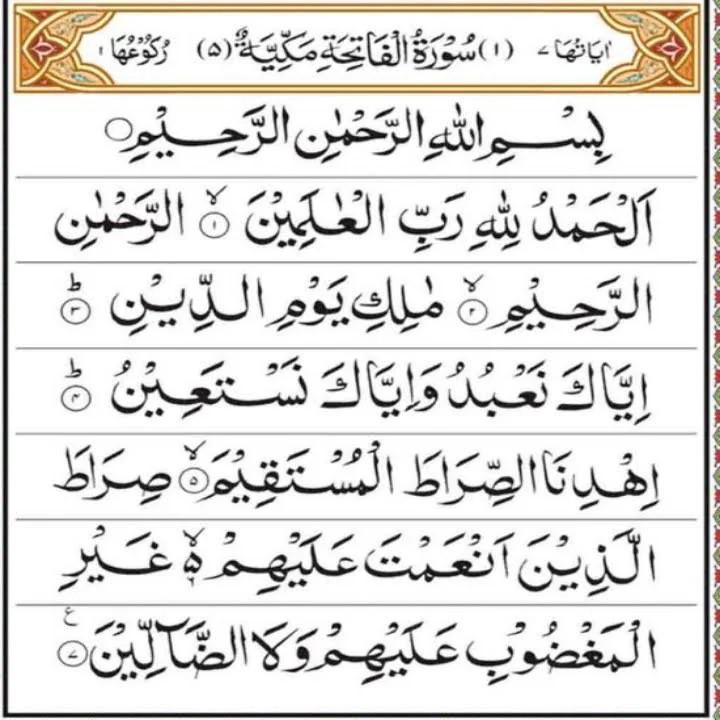 اٰيَاتُهَا ٧ (١) سُوْرَةُ الْفَاتِحَةِ مَكِّيَّةٌ (٥) رُكُوْعُهَا ١
بِسْمِ اللّٰهِ الرَّحْمٰنِ الرَّحِيْمِ ○
اَلْحَمْدُ لِلّٰهِ رَبِّ الْعٰلَمِيْنَ ۙ ١ الرَّحْمٰنِ
الرَّحِيْمِ ۙ ٢ مٰلِكِ يَوْمِ الدِّيْنِ ؕ ٣
اِيَّاكَ نَعْبُدُ وَاِيَّاكَ نَسْتَعِيْنُ ؕ ٤
اِهْدِنَا الصِّرَاطَ الْمُسْتَقِيْمَ ۙ ٥ صِرَاطَ
الَّذِيْنَ اَنْعَمْتَ عَلَيْهِمْ ۙ۵ غَيْرِ
الْمَغْضُوْبِ عَلَيْهِمْ وَلَا الضَّآلِّيْنَ ٧ ع